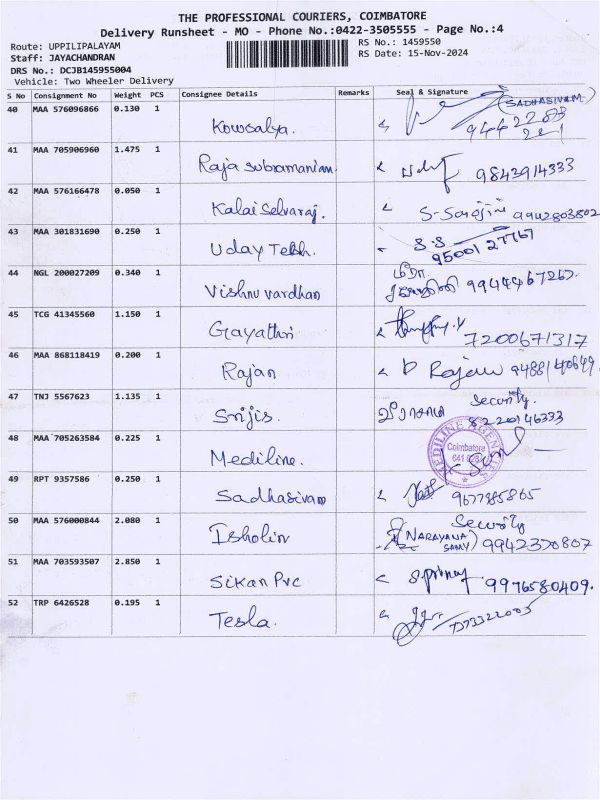 THE PROFESSIONAL COURIERS, COIMBATORE
Delivery Runsheet - MO - Phone No.:0422-3505555 - Page No.:4
Route: UPPILIPALAYAM
RS No.: 1459550
Staff: JAYACHANDRAN
RS Date: 15-Nov-2024
DRS No.: DCJB145955004
Vehicle: Two Wheeler Delivery
S No Consignment No Weight PCS Consignee Details Remarks Seal & Signature
40 MAA 576096866 0.130 1 Kowsalya. (SADHASIVAM)
41 MAA 705906960 1.475 1 Raja subramanian. 9842914333
42 MAA 576166478 0.050 1 Kalai Selvaraj. S-Sarojini 9942803802
43 MAA 301831690 0.250 1 Uday Tekh. S.S 9500127767
44 NGL 200027209 0.340 1 Vishnu vardhan மீரா. 9944467267.
45 TCG 41345560 1.150 1 Gayathri 7200671317
46 MAA 868118419 0.200 1 Rajan D Rajan 9488140649
47 TNJ 5567623 1.135 1 Srijis. Security. 8220146333
48 MAA 705263584 0.225 1 Mediline. MEDILINE AGENCIES Coimbatore
49 RPT 9357586 0.250 1 Sadhasivam 9677885865
50 MAA 576000844 2.080 1 Isholin Security (NARAYANA SAMY) 9942350807
51 MAA 703593507 2.850 1 Sikan Pvc 9976580409.
52 TRP 6426528 0.195 1 Tesla.